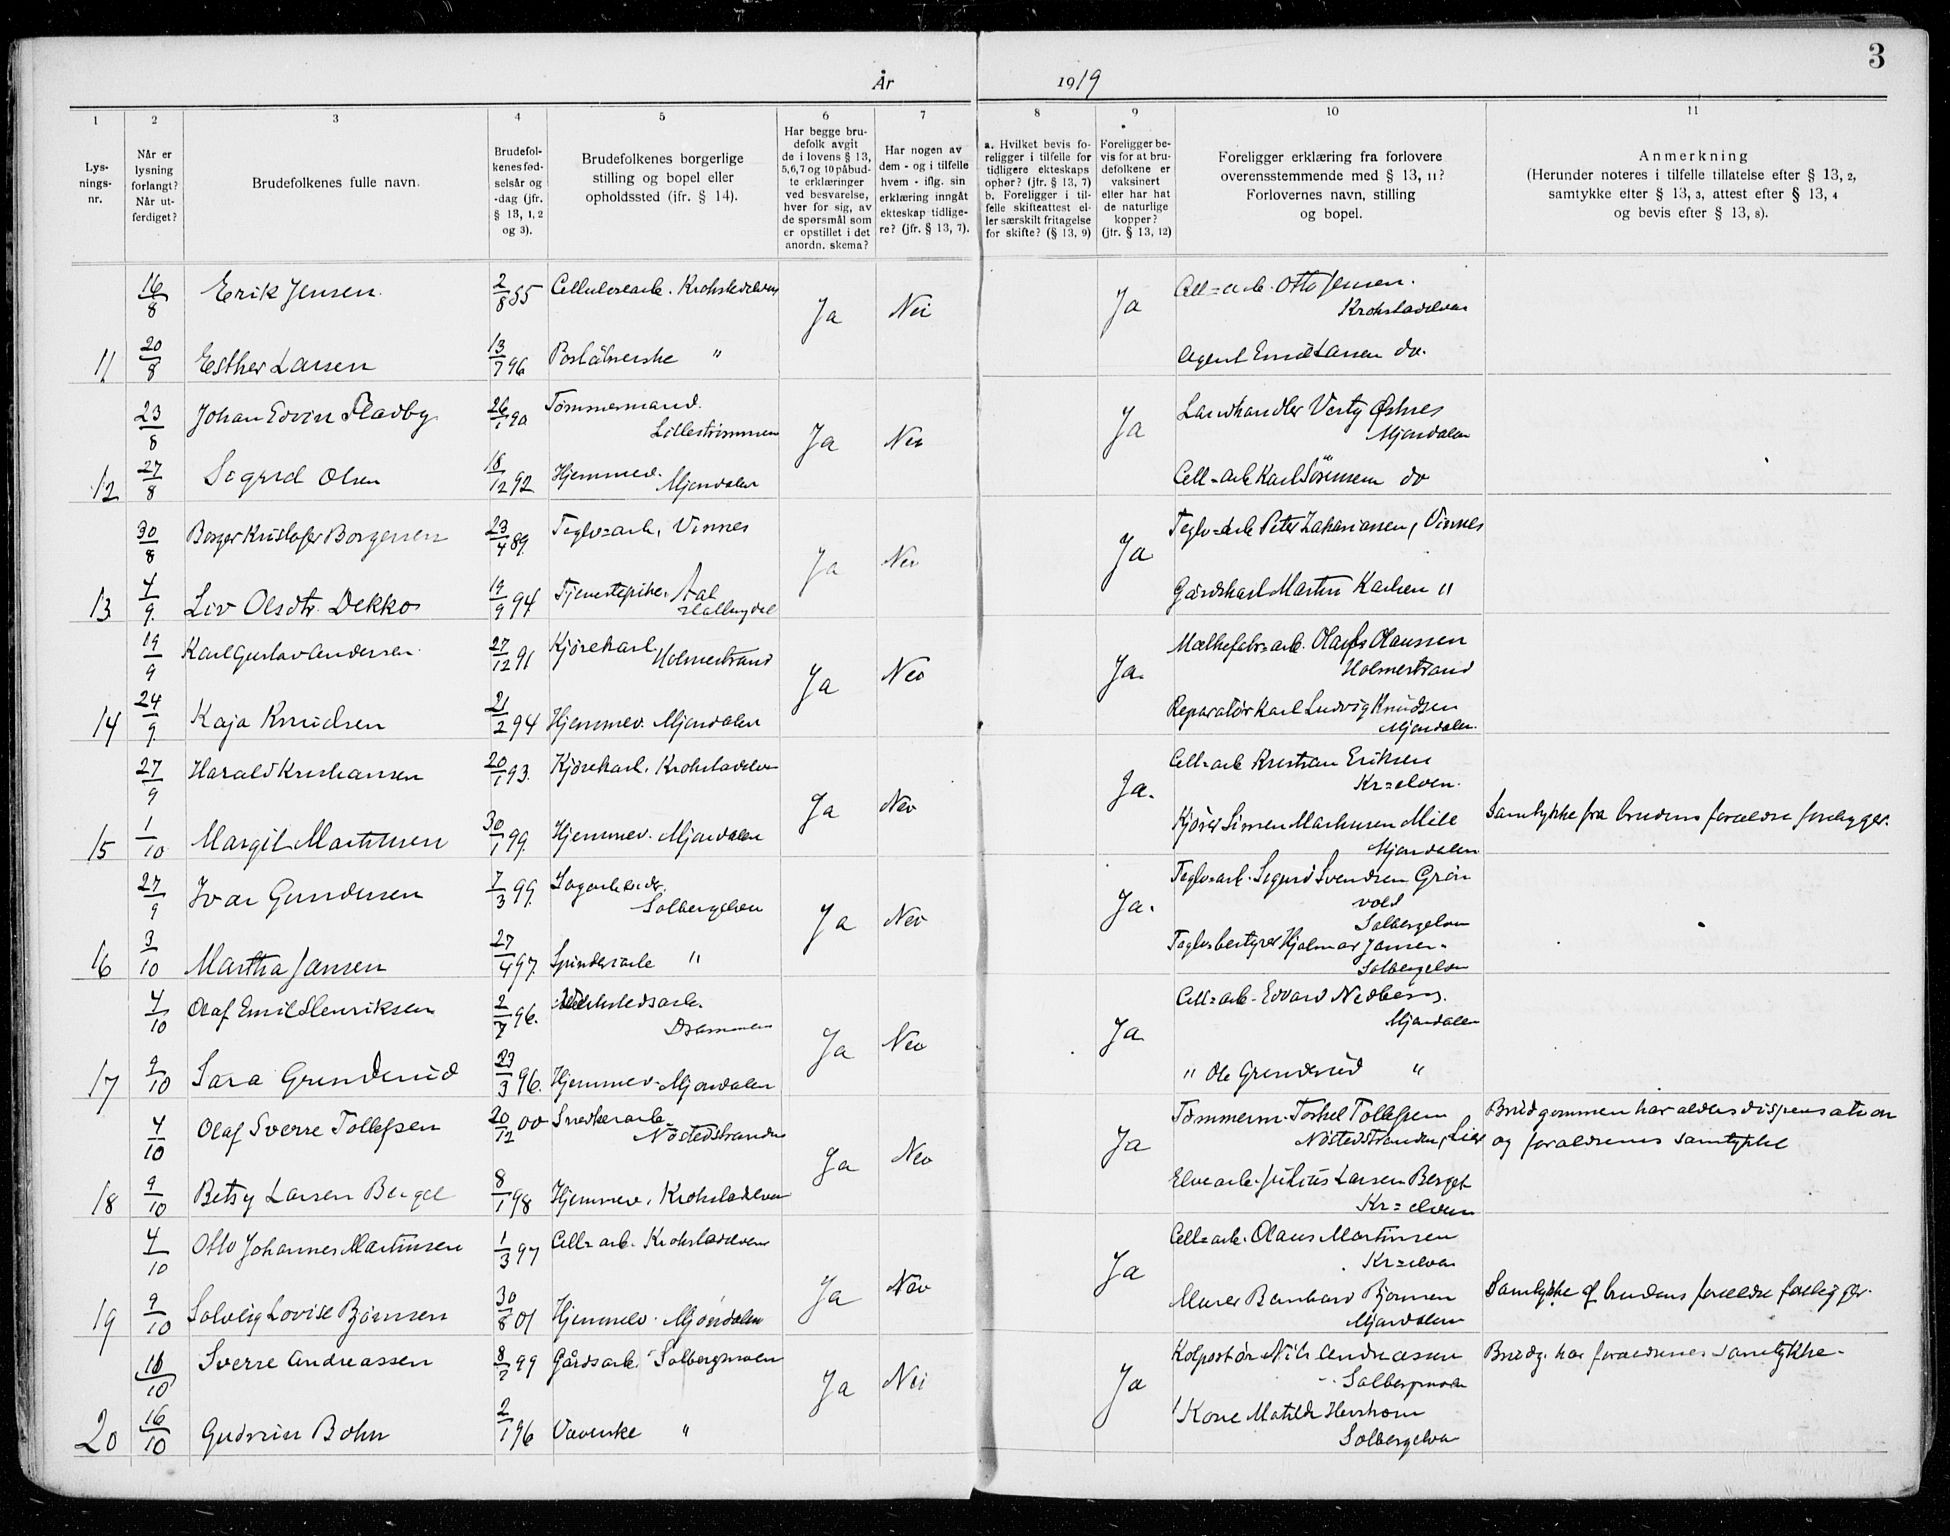 3
År 1919
1 2 3 4 5 6 7 8 9 10 11
Lys-
nings-
nr.
Når er
lysning
forlangt?
Når ut-
ferdiget?
Brudefolkenes fulle navn.
Brudefol-
kenes fød-
selsår og
-dag (jfr.
§ 13, 1, 2
og 3).
Brudefolkenes borgerlige
stilling og bopel eller
opholdssted (jfr. § 14).
Har begge bru-
defolk avgit
de i lovens § 13,
5,6,7 og 10 påbud-
te erklæringer
ved besvarelse,
hver for sig, av
de spørsmål som
er opstillet i det
anordn. skema?
Har nogen av
dem - og i tilfelle
hvem - iflg. sin
erklæring inngått
ekteskap tidlige-
re? (jfr. § 13, 7).
a. Hvilket bevis fo-
religger i tilfelle for
tidligere ekteskaps
ophør? (jfr. § 13, 7)
b. Foreligger i til-
felle skifteattest el-
ler særskilt fritagelse
for skifte? (§ 13, 9)
Foreligger be-
vis for at bru-
defolkene er
vaksinert
eller har hat
de naturlige
kopper?
(jfr. § 13, 12)
Foreligger erklæring fra forlovere
overensstemmende med § 13, 11?
Forlovernes navn, stilling
og bopel.
Anmerkning
(Herunder noteres i tilfelle tillatelse efter § 13, 2,
samtykke efter § 13, 3, attest efter § 13, 4
og bevis efter § 13, 8).
16/8 Erik Jensen 2/8 55 Cellulosearb. Krokstadelven Ja Nei Ja Cell=arb. Otto Jensen.
Krokstadelven
11 20/8 Esther Larsen 13/7 96 Postålnerske " Agent Emil Larsen do.
23/8 Johan Edvin Fladby 26/1 90 Tømmermand.
Lillestrømmen Ja Nei Ja Landhandler Verty Østnes
Mjøndalen
12 27/8 Sigrid Olsen 18/12 92 Hjemmev. Mjøndalen Cell=arb Karl Sörensen do
30/8 Borger Kristofer Borgersen 23/4 89. Teglv=arb. Vinnes Ja Nei Ja Teglv=arb Peter Zakariassen, Vinnes
13 4/9. Liv Olsdtr. Dekko 19/9 94. Tjenestepike. Aal
Hallingdal Gårdskarl Martin Karlsen "
19/9 Karl Gustav Andersen 27/12 91 Kjørekarl.
Holmestrand Ja Nei Ja. Mælkefabr=arb. Olaf Olaussen
Holmestrand
14 24/9. Kaja Knudsen 21/2 94 Hjemmev. Mjøndalen Reparatør Karl Ludvig Knudsen
Mjøndalen.
27/9 Harald Kristiansen 20/1 93. Kjørekarl. Krokstadelven Ja Nei Ja. Cell=arb Kristian Eriksen
Kr=elven.
15 1/10 Margit Martinsen 30/1 99. Hjemmev. Mjøndalen Kjører Simen Markusen Mile
Mjøndalen Samtykke fra brudens forældre foreligger.
27/9 Ivar Gundersen 7/3 99. Sagarbeider.
Solbergelven Ja Nei Ja. Teglv=arb. Sigurd Svendsen Grøn
vold
Solbergelven
16 3/10 Martha Jansen 27/4 97. Spinderiarb " Teglv.bestyrer Hjalmar Jansen.
Solbergelven
4/10 Olaf Emil Henriksen 2/7 96. Verkstedsarb.
Drammen Ja Nei Ja Cell=arb. Edvard Nedberg.
Mjøndalen
17 9/10 Sara Grenderud 23/3 96. Hjemmev. Mjøndalen " Ole Grenderud "
4/10 Olaf Sverre Tollefsen 20/12 00 Snedkerarb.
Nøstedstranden Ja Nei Ja Tømmerm. Torkel Tollefsen
Nøstedstranden, Lier Brudgommen har aldersdispensation
og forældrenes samtykke
18 9/10 Betsy Larsen Berget 8/1 98 Hjemmev. Krokstadelven Elvearb. Julius Larsen Berget
Kr=elven
4/10 Otto Johannes Martinsen 1/3 97 Cell=arb. Krokstadelven Ja Nei Ja Cell=arb. Olaus Martinsen
Kr=elven
19 9/10 Solveig Lovise Bjørnsen 30/8 01 Hjemmev. Mjøndalen Murer Bernhard Bjørnsen
Mjøndalen Samtykke af brudens forældre foreligger.
16/10 Sverre Andreassen 8/7 99 Gårdsarb. Solbergmoen Ja Nei Ja Kolportør Nils Andreassen
Solbergmoen Brudg. har forældrenes samtykke.
20 16/10 Gudrun Bohn 2/1 96 Væverske " Kone Matilde
Solbergelva